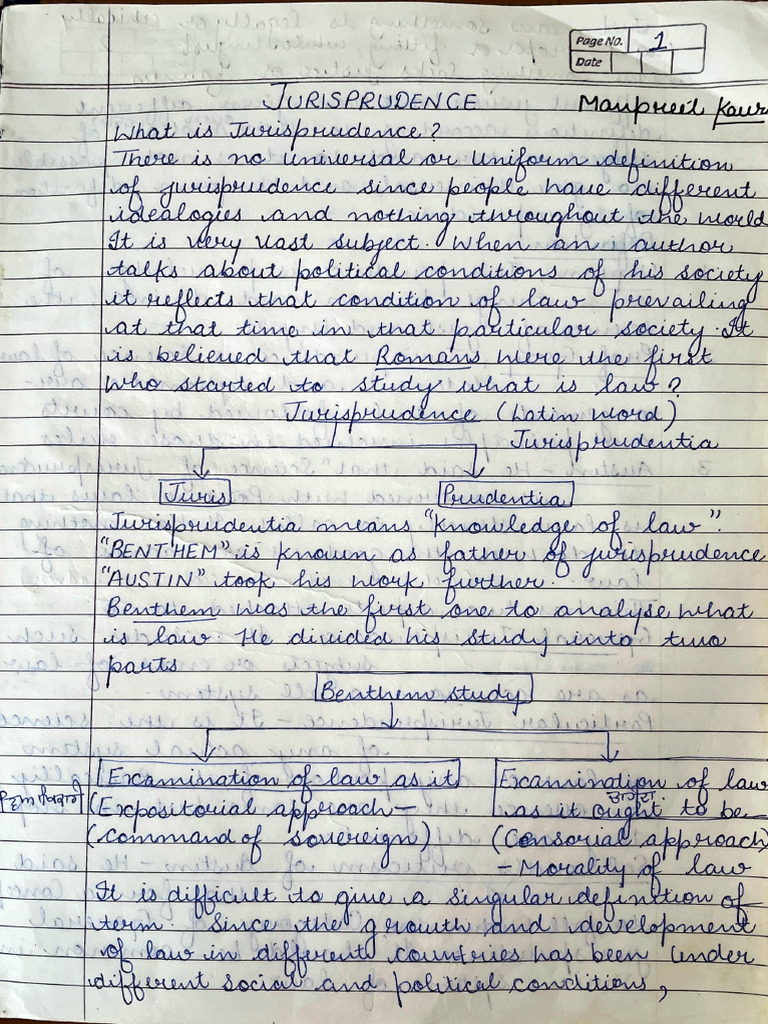 Page No. 1
Date
JURISPRUDENCE
Manpreet Kaur
What is Jurisprudence?
There is no universal or uniform definition
of jurisprudence since people have different
idealogies and nothing throughout the world
It is very vast subject. When an author
talks about political conditions of his society
it reflects that condition of law prevailing
at that time in that particular society. It
is believed that Romans were the first
who started to study what is law?
Jurisprudence (Latin word)
Jurisprudentia
Juris
Prudentia
Jurisprudentia means "Knowledge of law".
"BENTHEM" is known as father of jurisprudence
"AUSTIN" took his work further.
Benthem was the first one to analyse what
is law. He divided his study into two
parts
Benthem study
Examination of law as it
(Expositorial approach –
(Command of sovereign)
Examination of law
as it ought to be
(Censorial approach)
– Morality of law
It is difficult to give a singular definition of
term. Since the growth and development
of law in different countries has been under
different social and political conditions,